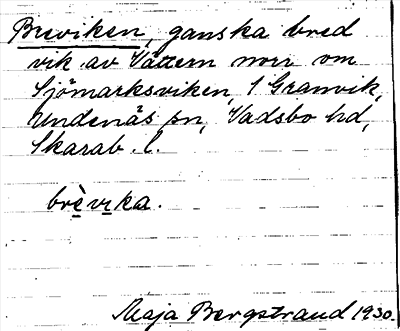 Breviken, ganska bred
vik av Vättern norr om
Sjömarksviken, 1 Granvik,
Undenäs sn, Vadsbo hd,
Skarab. l.
brèvıka.
Maja Bergstrand 1930.